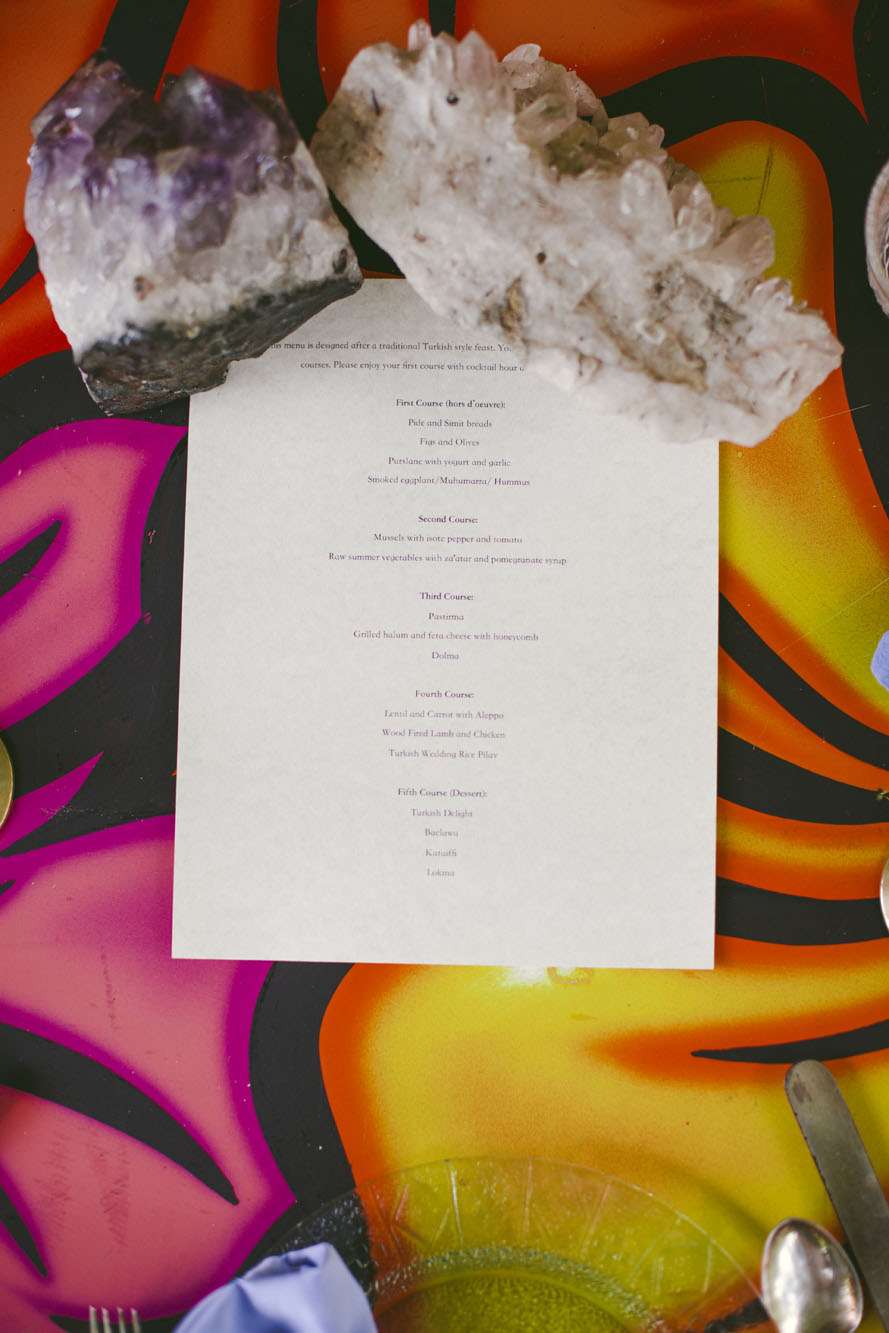 his menu is designed after a traditional Turkish style feast.
courses. Please enjoy your first course with cocktail hour
First Course (hors d'oeuvre):
Pide and Simit breads
Figs and Olives
Purslane with yogurt and garlic
Smoked eggplant/Muhumarra/ Hummus
Second Course:
Mussels with isote pepper and tomato
Raw summer vegetables with za'atar and pomegranate syrup
Third Course:
Pastirma
Grilled halum and feta cheese with honeycomb
Dolma
Fourth Course:
Lentil and Carrot with Aleppo
Wood Fired Lamb and Chicken
Turkish Wedding Rice Pilav
Fifth Course (Dessert):
Turkish Delight
Baclawa
Kataiffi
Lokma